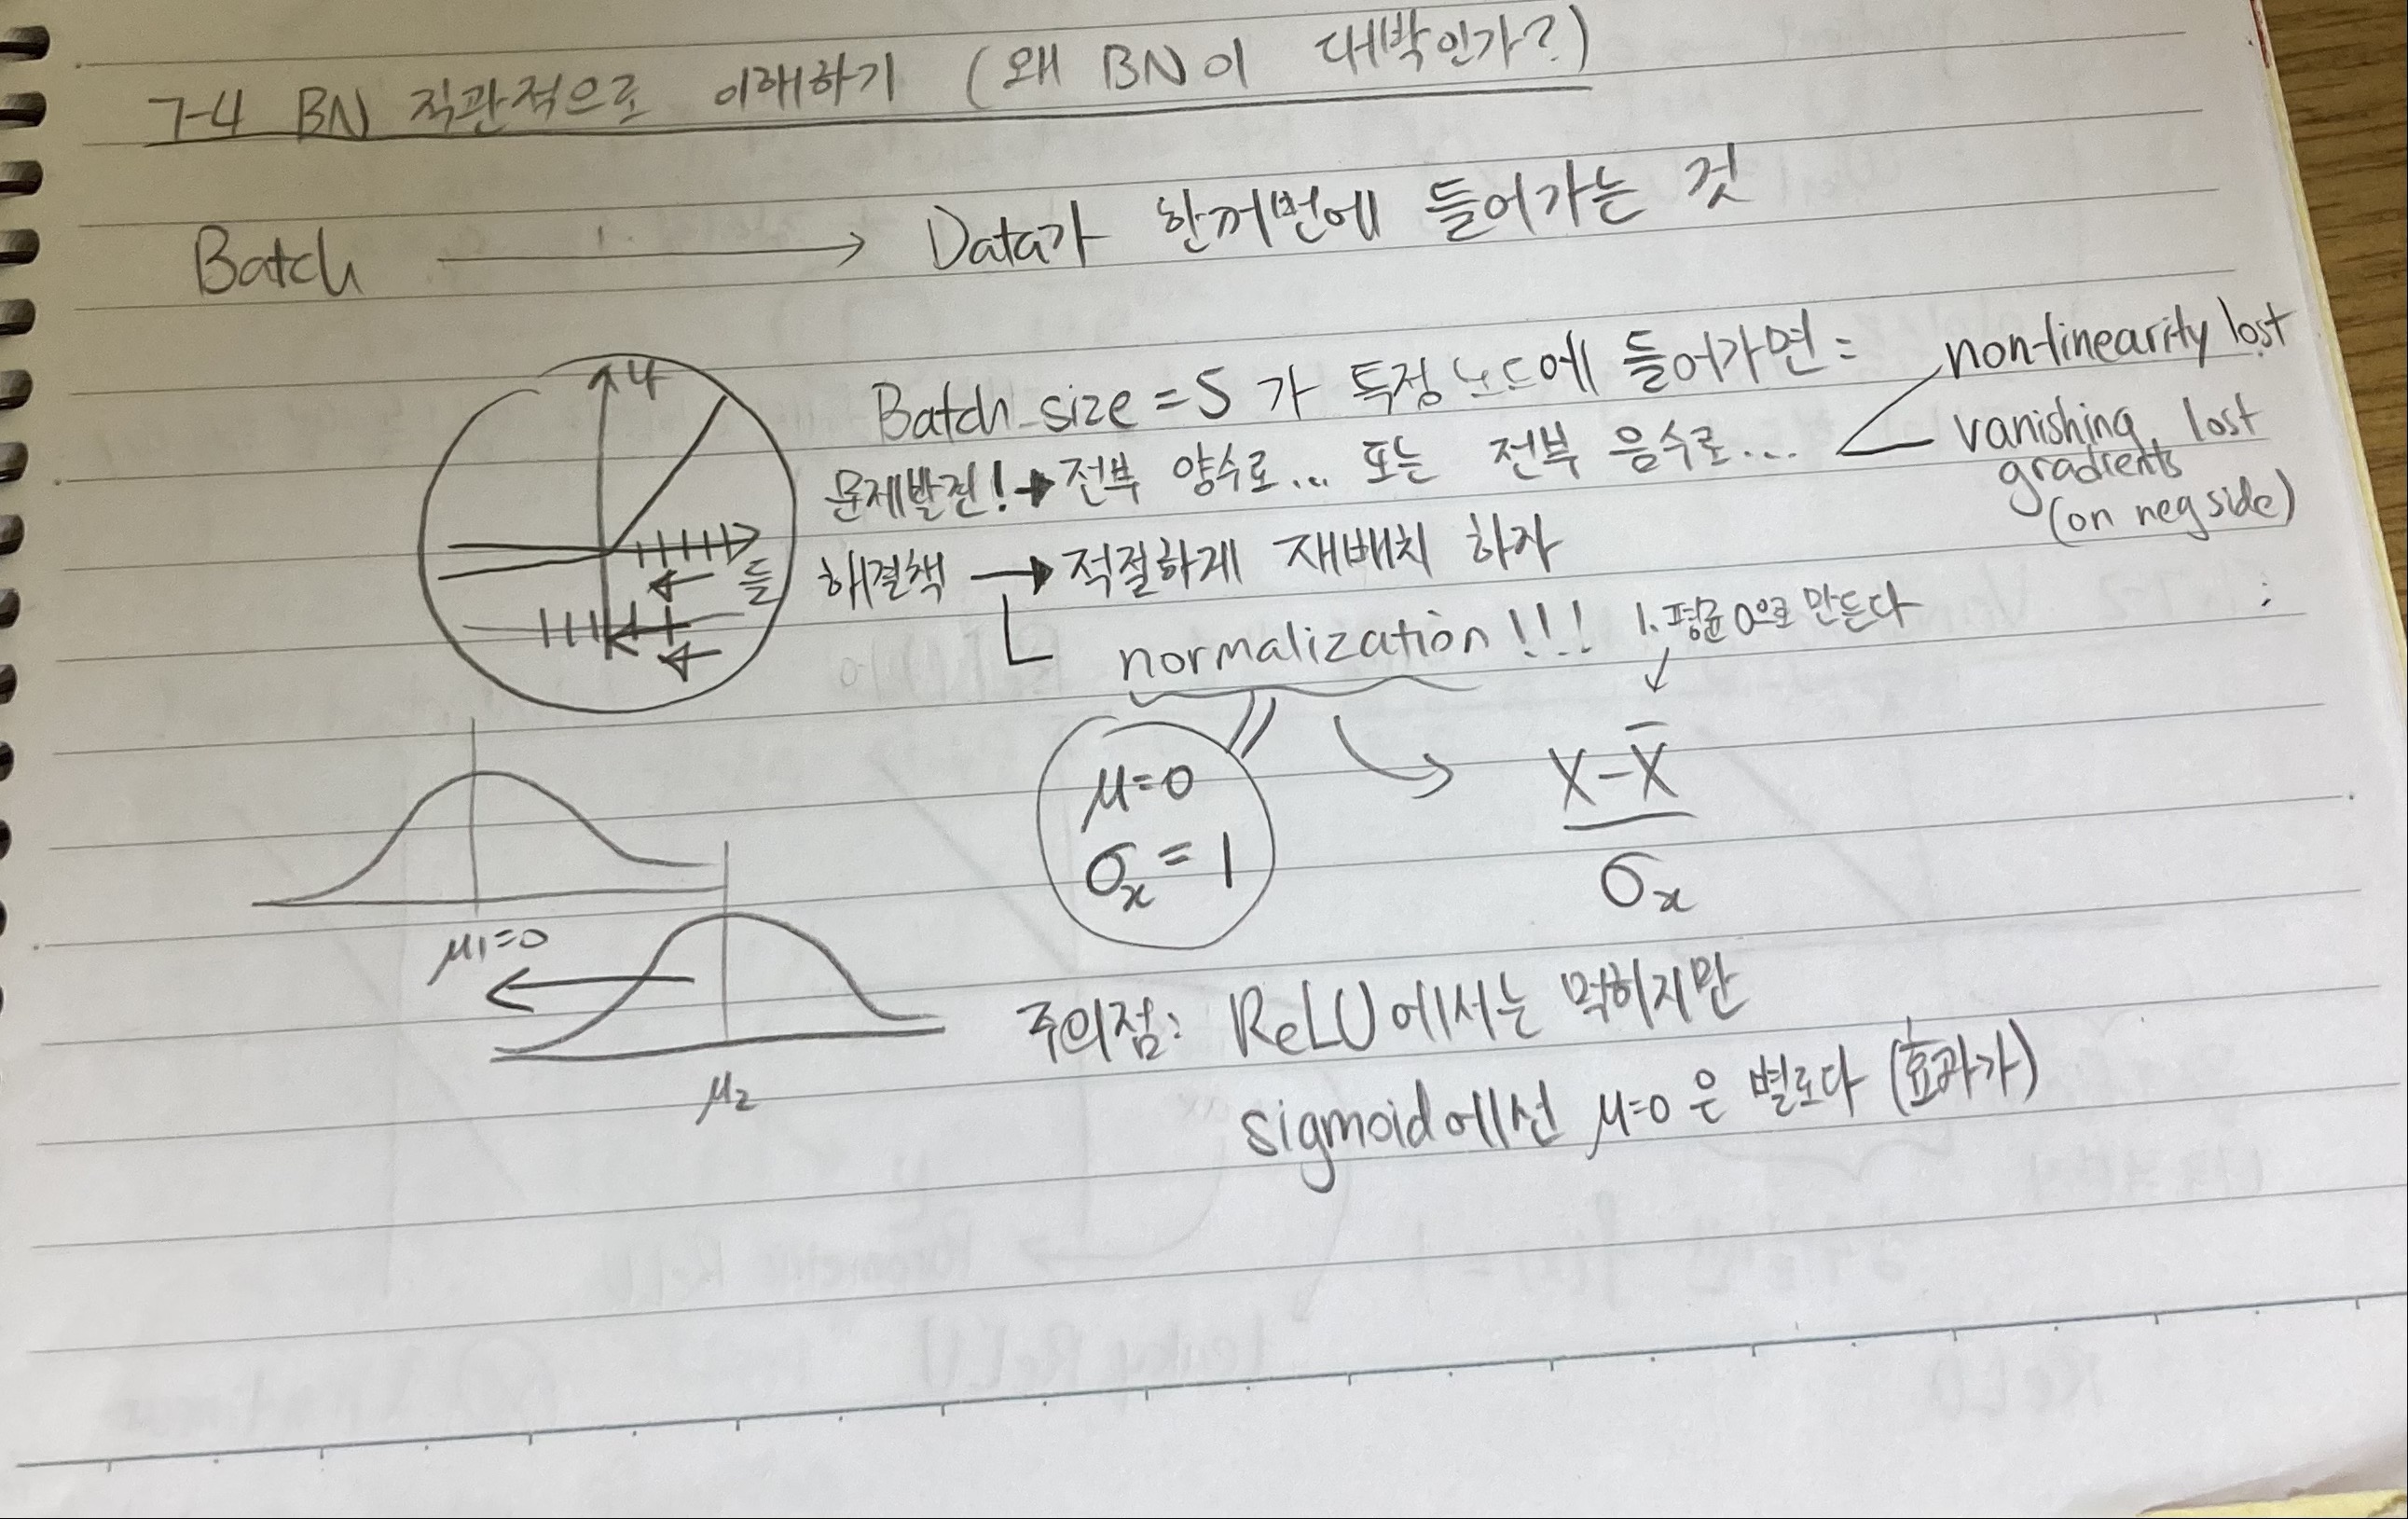 7-4 BN 직관적으로 이해하기 (왜 BN이 대박인가?)
Batch → Data가 한꺼번에 들어가는 것
Batch_size = 5 가 특정 노드에 들어가면 =
문제발견! → 전부 양수로... 또는 전부 음수로...
non-linearity lost
vanishing lost
gradients
(on neg side)
해결책 → 적절하게 재배치 하자
normalization!!! 1. 평균 0으로 만든다
μ=0
σx = 1
X-X̄
σx
μ1=0
μ2
주의점: ReLU에서는 먹히지만
sigmoid에선 μ=0 은 별로다 (효과가)